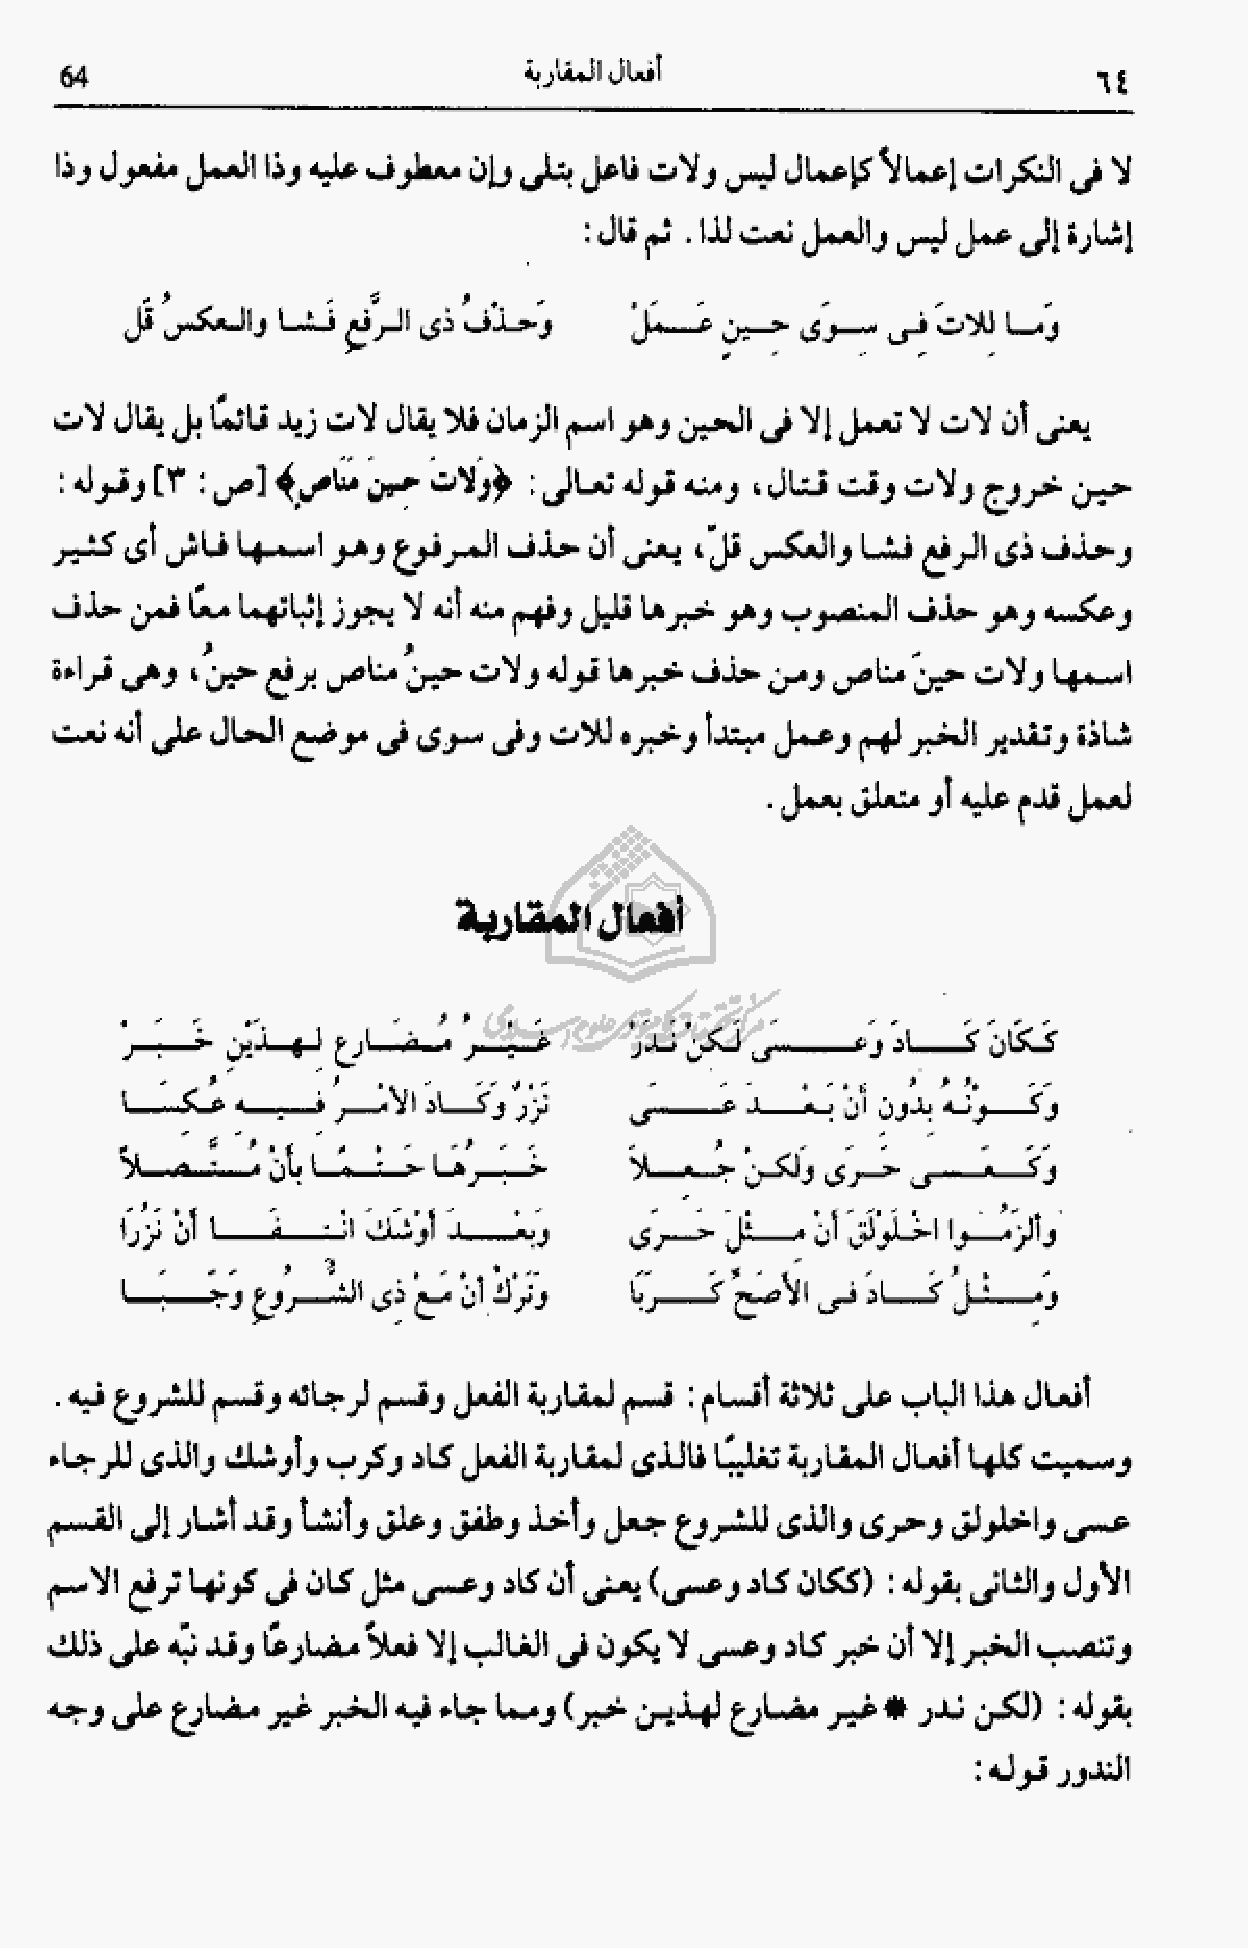 ٦٤ أفعال المقاربة 64
لا فى النكرات إعمالاً كإعمال ليس ولات فاعل بتلى وإن معطوف عليه وذا العمل مفعول وذا
إشارة إلى عمل ليس والعمل نعت لذا . ثم قال :
وَمَا لِلاتَ فِى سِوَى حِينٍ عَمَلْ وَحَذْفُ ذى الرَّفعِ فَشا والعكسُ قَل
يعنى أن لات لا تعمل إلا فى الحين وهو اسم الزمان فلا يقال لات زيد قائمًا بل يقال لات
حين خروج ولات وقت قتال ، ومنه قوله تعالى : ﴿وَلاتَ حِينَ مَنَاصٍ﴾ [ص : ٣] وقوله :
وحذف ذى الرفع فشا والعكس قلّ ، يعنى أن حذف المرفوع وهو اسمها فاش أى كثير
وعكسه وهو حذف المنصوب وهو خبرها قليل وفهم منه أنه لا يجوز إثباتهما معًا فمن حذف
اسمها ولات حينَ مناص ومن حذف خبرها قوله ولات حينُ مناص برفع حينُ ، وهى قراءة
شاذة وتقدير الخبر لهم وعمل مبتدأ وخبره للات وفى سوى فى موضع الحال على أنه نعت
لعمل قدم عليه أو متعلق بعمل .
أفعال المقاربة
كَكَانَ كَادَ وَعَسَى لَكِنْ نَدَرْ غَيْرُ مُضَارِعٍ لِهذَيْنِ خَبَرْ
وَكَوْنُهُ بِدُونِ أَنْ بَعْدَ عَسَى نَزْرٌ وَكَادَ الأمْرُ فِيهِ عُكِسَا
وَكَعَسَى حَرَى وَلَكِنْ جُعِلاَ خَبَرُهَا حَتْمًا بأَنْ مُتَّصِلاً
وَألزَمُوا اخْلَوْلَقَ أَنْ مِثْلَ حَرَى وَبَعْدَ أَوْشَكَ انْتِفَا أَنْ نَزُرَا
وَمِثْلُ كَادَ فى الأَصَحِّ كَرَبَا وَتَرْكُ أَنْ مَعْ ذِى الشُّرُوعِ وَجَبَا
أفعال هذا الباب على ثلاثة أقسام : قسم لمقاربة الفعل وقسم لرجائه وقسم للشروع فيه .
وسميت كلها أفعال المقاربة تغليبًا فالذى لمقاربة الفعل كاد وكرب وأوشك والذى للرجاء
عسى واخلولق وحرى والذى للشروع جعل وأخذ وطفق وعلق وأنشأ وقد أشار إلى القسم
الأول والثانى بقوله : (ككان كاد وعسى) يعنى أن كاد وعسى مثل كان فى كونها ترفع الاسم
وتنصب الخبر إلا أن خبر كاد وعسى لا يكون فى الغالب إلا فعلاً مضارعًا وقد نبّه على ذلك
بقوله : (لكن ندر * غير مضارع لهذين خبر) ومما جاء فيه الخبر غير مضارع على وجه
الندور قوله :